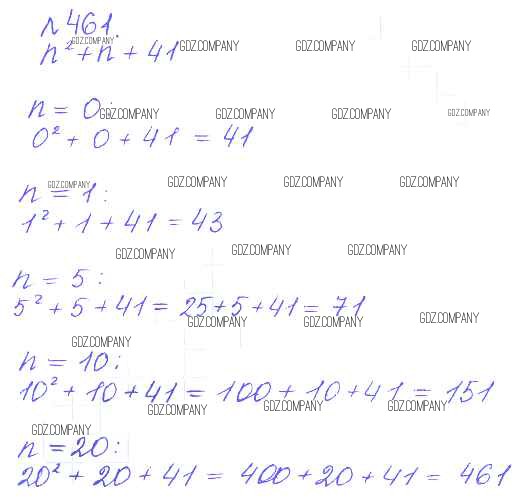 № 461.
n² + n + 41
GDZ.COMPANY GDZ.COMPANY GDZ.COMPANY GDZ.COMPANY
n = 0:
GDZ.COMPANY GDZ.COMPANY GDZ.COMPANY GDZ.COMPANY
0² + 0 + 41 = 41
GDZ.COMPANY GDZ.COMPANY GDZ.COMPANY GDZ.COMPANY
n = 1:
1² + 1 + 41 = 43
GDZ.COMPANY GDZ.COMPANY GDZ.COMPANY
n = 5:
5² + 5 + 41 = 25 + 5 + 41 = 71
GDZ.COMPANY GDZ.COMPANY GDZ.COMPANY
GDZ.COMPANY
n = 10:
10² + 10 + 41 = 100 + 10 + 41 = 151
GDZ.COMPANY GDZ.COMPANY GDZ.COMPANY
GDZ.COMPANY
n = 20:
20² + 20 + 41 = 400 + 20 + 41 = 461